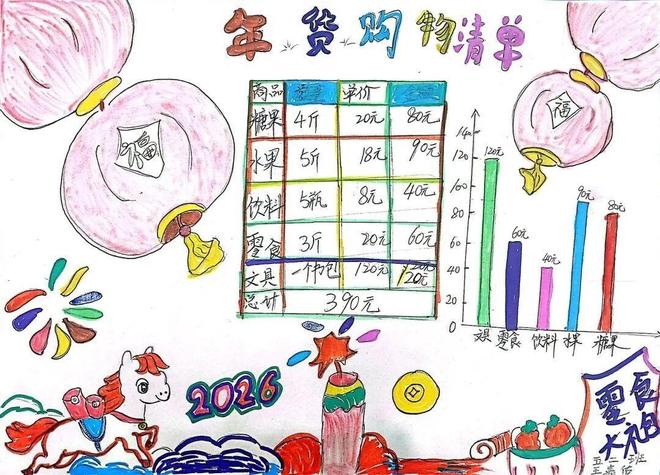 年货购物清单
福
福
商品 单价
糖果 4斤 20元 80元
水果 5斤 18元 90元
饮料 5瓶 8元 40元
零食 3斤 20元 60元
文具 一个书包 120元 120元
总计 390元
140
120
100
80
60
40
20
0
120元
60元
40元
90元
80元
文具 零食 饮料 水果 糖果
2026
零食
大
五二班